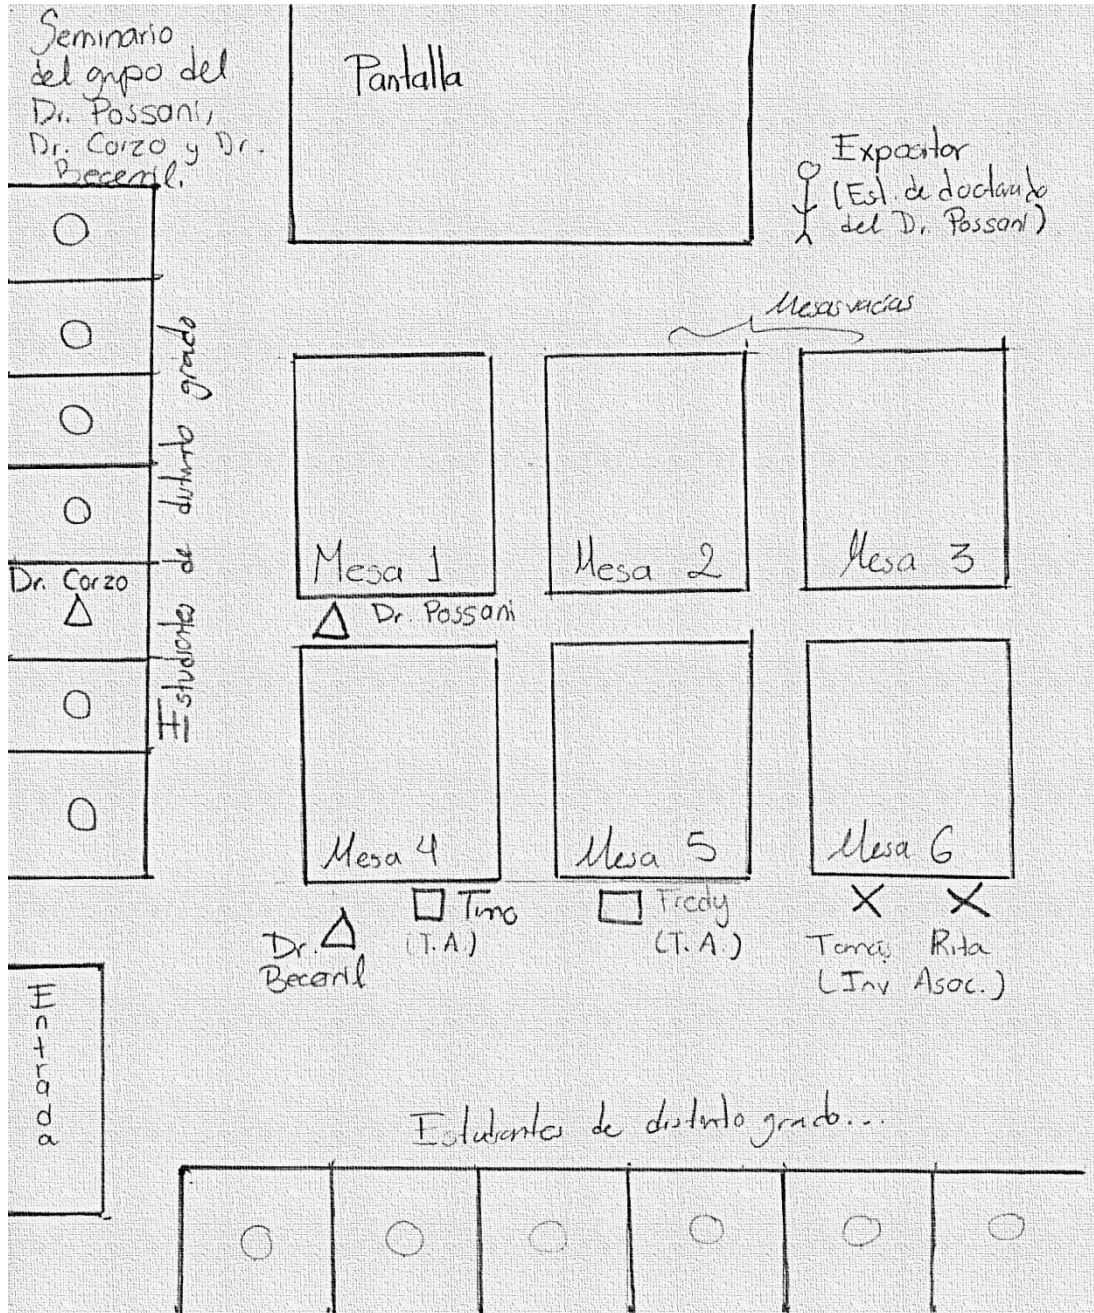 Seminario
del grupo del
Dr. Possani,
Dr. Corzo y Dr.
Becerril.
Pantalla
Expositor
(Est. de doctorado
del Dr. Possani)
Mesas vacías
Estudiantes de distinto grado
Dr. Corzo
Mesa 1
Mesa 2
Mesa 3
Dr. Possani
Mesa 4
Mesa 5
Mesa 6
Dr.
Becerril
Timo
(T.A.)
Fredy
(T.A.)
Tomás Rita
(Inv Asoc.)
Entrada
Estudiantes de distinto grado...